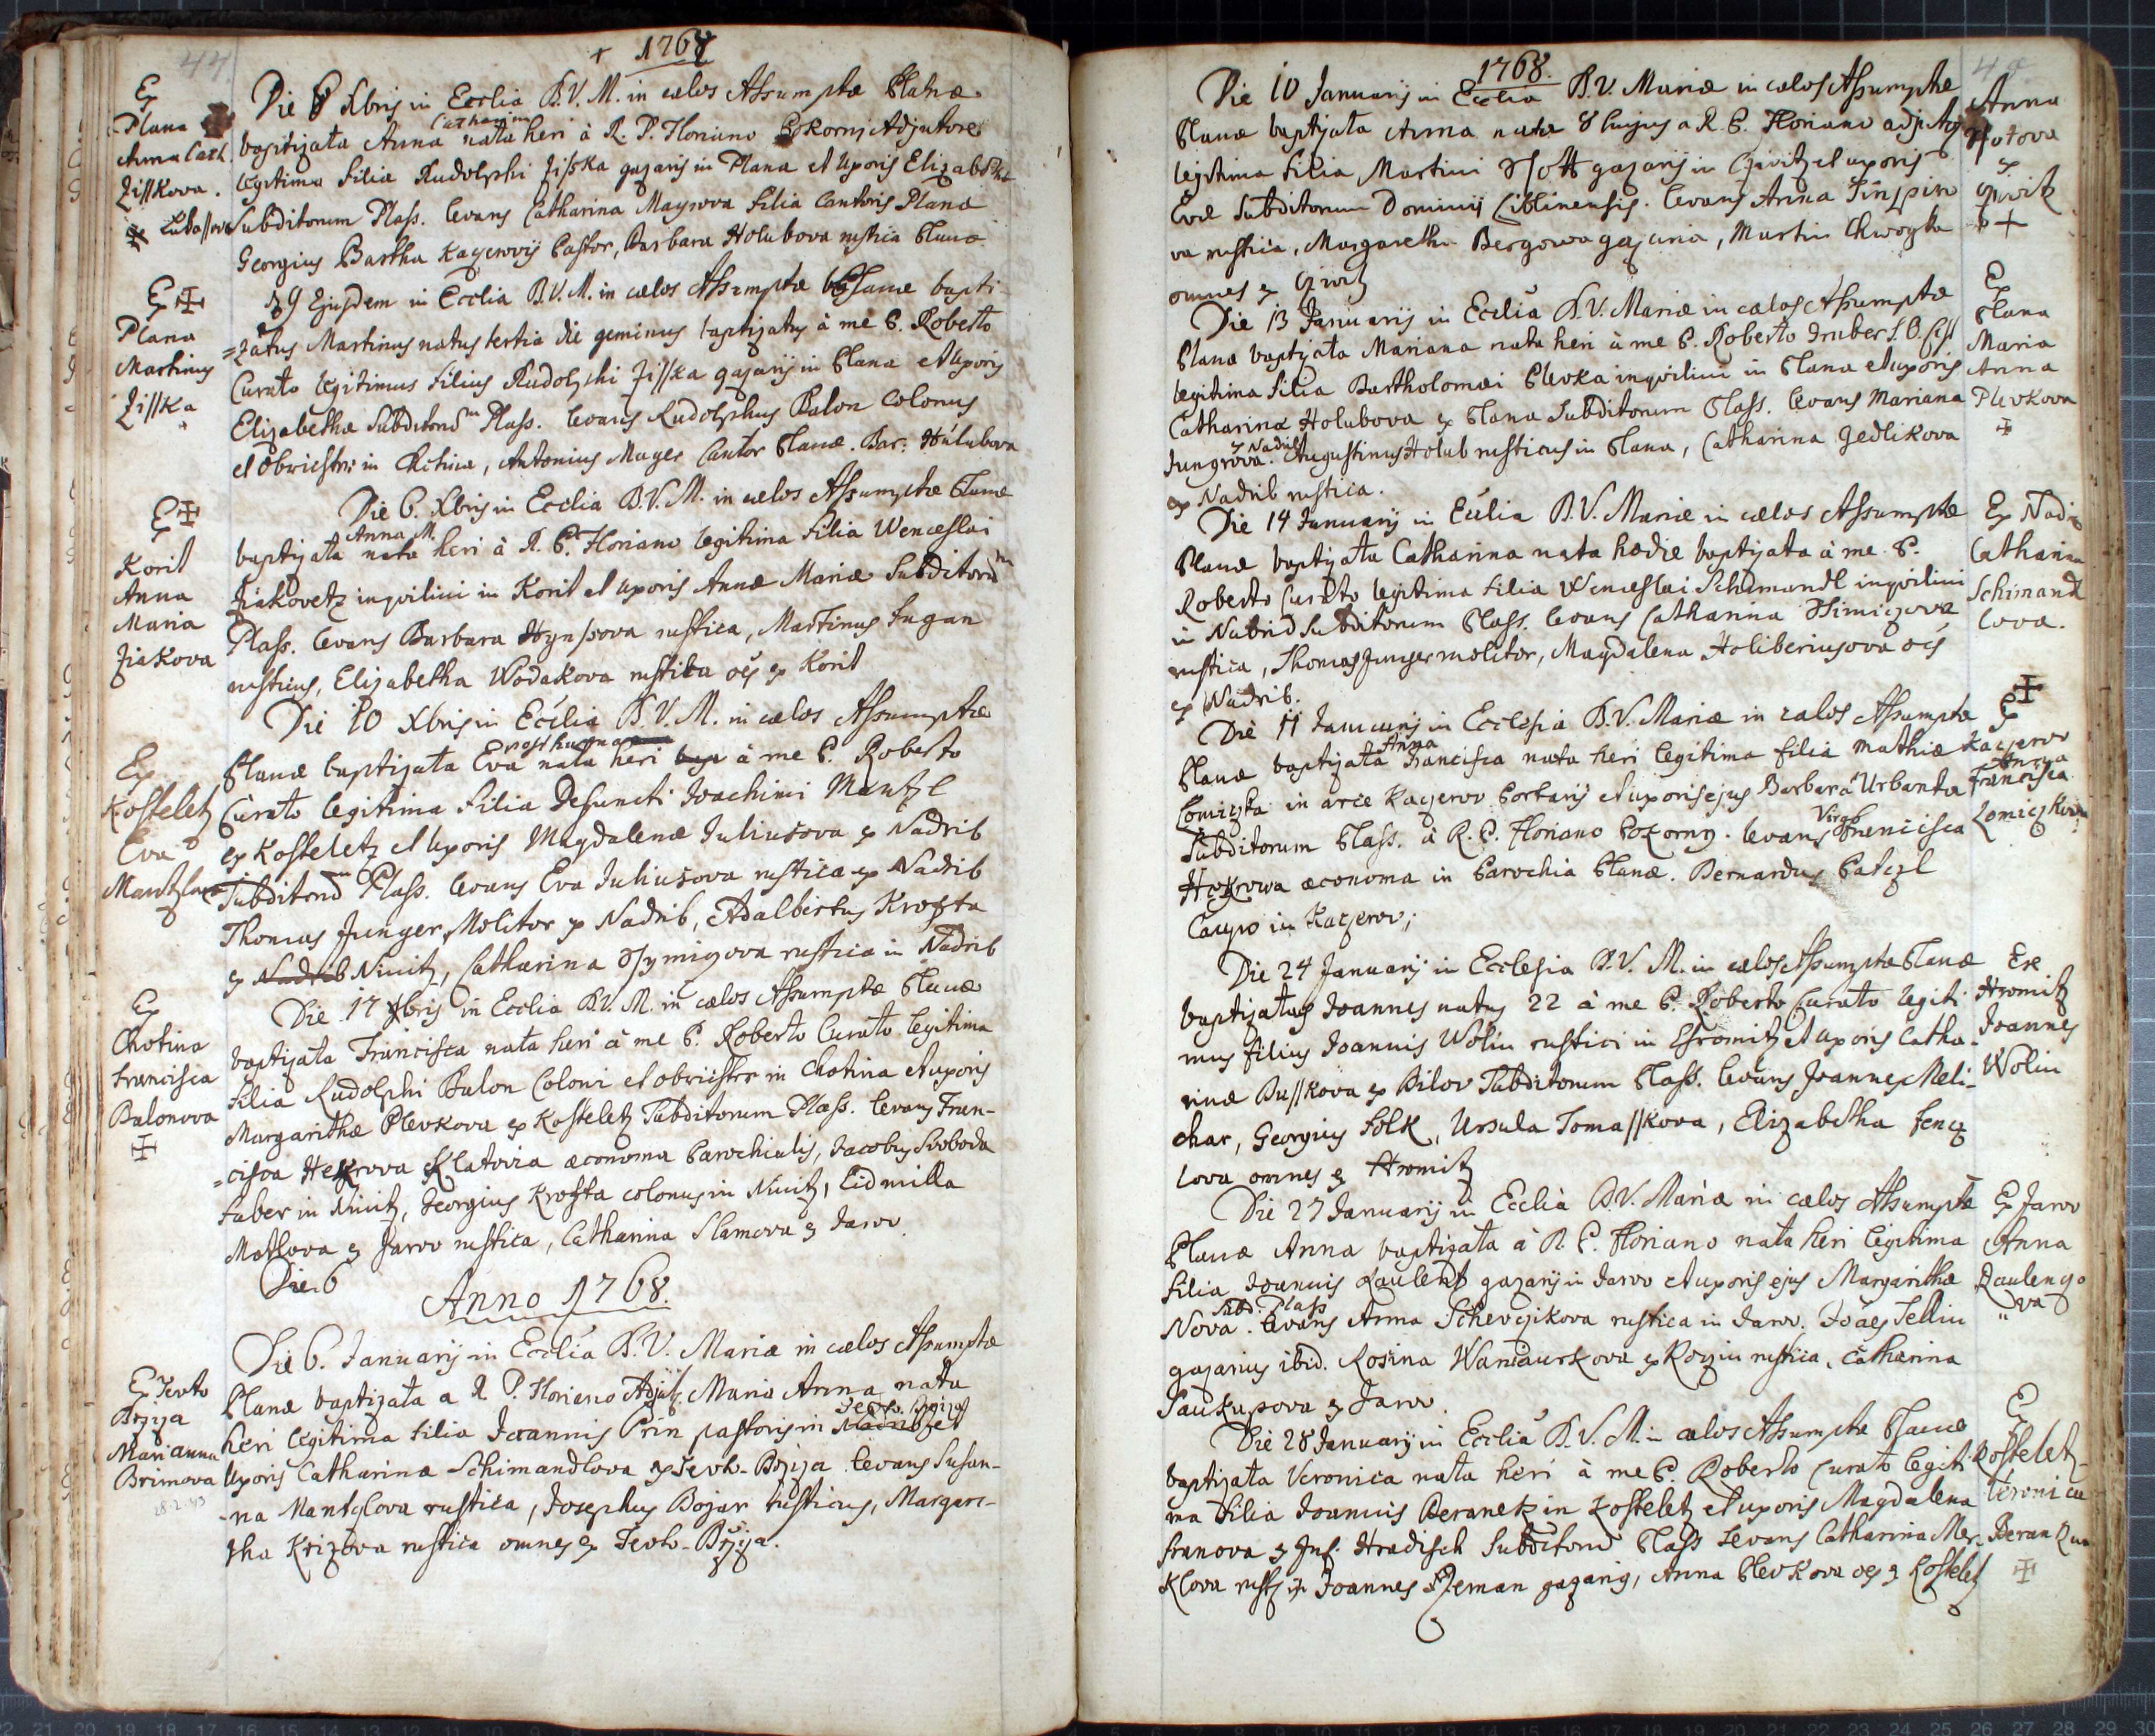 44.
+ 1768
Ex
Plana
Anna Cath.
Zisskova.
Die 8 Xbris in Ecclia B.V.M. in cælos Assumptæ Planæ
Catharina
baptizata Anna nata heri à R. P. Floriano Pokorny Adjutore
legitima Filia Rudolphi Zisska gazarij in Plana et Uxoris Elizabethæ
Subditorum Plass. levans Catharina Mayrova Filia Cantoris Planæ
Georgius Bartha Pastor, Barbara Holubova rustica Planæ
Ex
Plana
Martinus
Zisska
9 Ejusdem in Ecclia B.V.M. in cælos Assumptæ Planæ bapti-
=zatus Martinus natus tertia die geminus baptizatus à me P. Roberto
Curato legitimus Filius Rudolphi Zisska gazarij in Plana et Uxoris
Elizabethæ Subditorum Plass. levans Rudolphus Balon Colonus
et in Chotina, Antonius Mayer Cantor Planæ. Bar: Holubova
Ex
Korit
Anna
Maria
Ziakova
Die 6. Xbris in Ecclia B.V.M. in cælos Assumptæ Planæ
Anna M.
baptizata nata heri à R. P. Floriano legitima Filia Wenceslai
Ziakovetz inqvilini in Korit et Uxoris Annæ Mariæ Subditorum
Plass. levans Barbara Hynssova rustica, Martinus Dugan
rusticus, Elizabetha Wodakova rustica oes ex Korit
Ex
Kosteletz
Eva
Mantzlova
Die 10 Xbris in Ecclia B.V.M. in cælos Assumptæ
posthuma
Planæ baptizata Eva nata heri à me P. Roberto
Curato legitima Filia Defuncti Joachimi Mantzl
ex Kosteletz et Uxoris Magdalenæ Juliusova ex Nadrib
Subditorum Plass. levans Eva Juliusova rustica ex Nadrib
Thomas Junger Molitor ex Nadrib, Adalbertus Krofta
ex Nadrib Ninitz, Catharina rustica in Nadrib
Ex
Chotina
Francisca
Balonova
Die 17 Xbris in Ecclia B.V.M. in cælos Assumptæ Planæ
baptizata Francisca nata heri à me P. Roberto Curato legitima
Filia Rudolphi Balon Coloni et in Chotina et uxoris
Margarithæ Plevkova ex Kosteletz Subditorum Plass. levans Fran-
=cisca Hekrova Klatovia œconoma Parochialis, Jacobus Svoboda
Faber in Ninitz, Georgius Krofta colonus in Ninitz, Lidmilla
Motlova ex Jarov rustica, Catharina Slamova ex Jarov.
Die 6
Anno 1768.
Ex Tevto
Brziza
Marianna
Brimova
28.2.43
Die 6. Januarij in Ecclia B.V. Mariæ in cælos Assumptæ
Planæ baptizata a R. P. Floriano Adjut. Maria Anna nata
heri legitima Filia Joannis Prin pastoris in Nadrib et
Uxoris Catharinæ Schimandlova ex Tevto-Brziza. levans Susan-
-na Mantzlova rustica, Josephus Bojar rusticus, Margare-
tha Krizova rustica omnes ex Tevto-Brziza.
1768.
Die 10 Januarij in Ecclia B.V. Mariæ in cælos Assumptæ
Planæ baptizata Anna nata 8 hujus a R. P. Floriano adjuto
legitima Filia Martini gazarij in et uxoris
Evæ Subditorum Dominij Liblinensis. levans Anna
va rustica, Margaretha Bergowa gazaria, Martin
omnes ex
Anna
ex
Die 13 Januarij in Ecclia B.V. Mariæ in cælos Assumptæ
Planæ baptizata Mariana nata heri à me P. Roberto Gruber S. O. Cist
legitima Filia Bartholomæi Plevka inqvilini in Plana et uxoris
Catharinæ Holubova ex Plana Subditorum Plass. levans Mariana
ex Nadrib
Jungrova. Augustinus Holub rusticus in Plana, Catharina Jedlikova
ex Nadrib rustica.
Ex
Plana
Maria
Anna
Plevkova
Die 14 Januarij in Ecclia B.V. Mariæ in cælos Assumptæ
Planæ baptizata Catharina nata hodie baptizata à me P.
Roberto Curato legitima Filia Wenceslai Schimandl inqvilini
in Nadrib Subditorum Plass. levans Catharina
rustica, Thomas Junger molitor, Magdalena Holiberiusova oes
ex Nadrib.
Ex Nadrib
Catharina
Schimand
lova.
Die 11 Januarij in Ecclesia B.V. Mariæ in cælos Assumptæ
Anna
Planæ baptizata Francisca nata heri legitima filia Mathiæ
Lomiczka in arce Kaczerov Portarij et uxoris ejus Barbara Urbanka
Subditorum Plass. à R. P. Floriano Pokorny. levans Virgo Francisca
Hekrowa œconoma in Parochia Planæ. Bernardus Patczl
Caupo in Kaczerov;
Ex
Kaczerov
Anna
Francisca
Lomiczkova
Die 24 Januarij in Ecclesia B.V.M. in cælos Assumptæ Planæ
baptizatus Joannes natus 22 à me P. Roberto Curato legiti
mus filius Joannis Wolin rustici in Hromitz et uxoris Catha-
rinæ Busskova ex Bilov Subditorum Plass. levans Joannes Meli-
char, Georgius Folk, Ursula Tomasskova, Elizabetha Fencz
lova omnes ex Hromitz
Exe
Hromitz
Joannes
Wolin
Die 27 Januarij in Ecclia B.V. Mariæ in cælos Assumptæ
Planæ Anna baptizata à R. P. Floriano nata heri legitima
Filia Joannis gazarij in Jarov et uxoris ejus Margarithæ
Subd. Plass
Nova. levans Anna Schevczikova rustica in Jarov. Joaes Tellin
gazarius ibid. Rosina rustica, Catharina
Saukupova ex Jarov.
Ex Jarov
Anna
Die 28 Januarij in Ecclia B.V.M. in cælos Assumptæ Planæ
baptizata Veronica nata heri à me P. Roberto Curato legiti
ma Filia Joannis Beranek in Kosteletz et uxoris Magdalena
Franova ex Inf. Hradisch Subditorum Plass levans Catharina Mer-
klova Joannes Zeman gazarius, Anna Plevkova oes ex Kosteletz
Ex
Kosteletz
Veronica